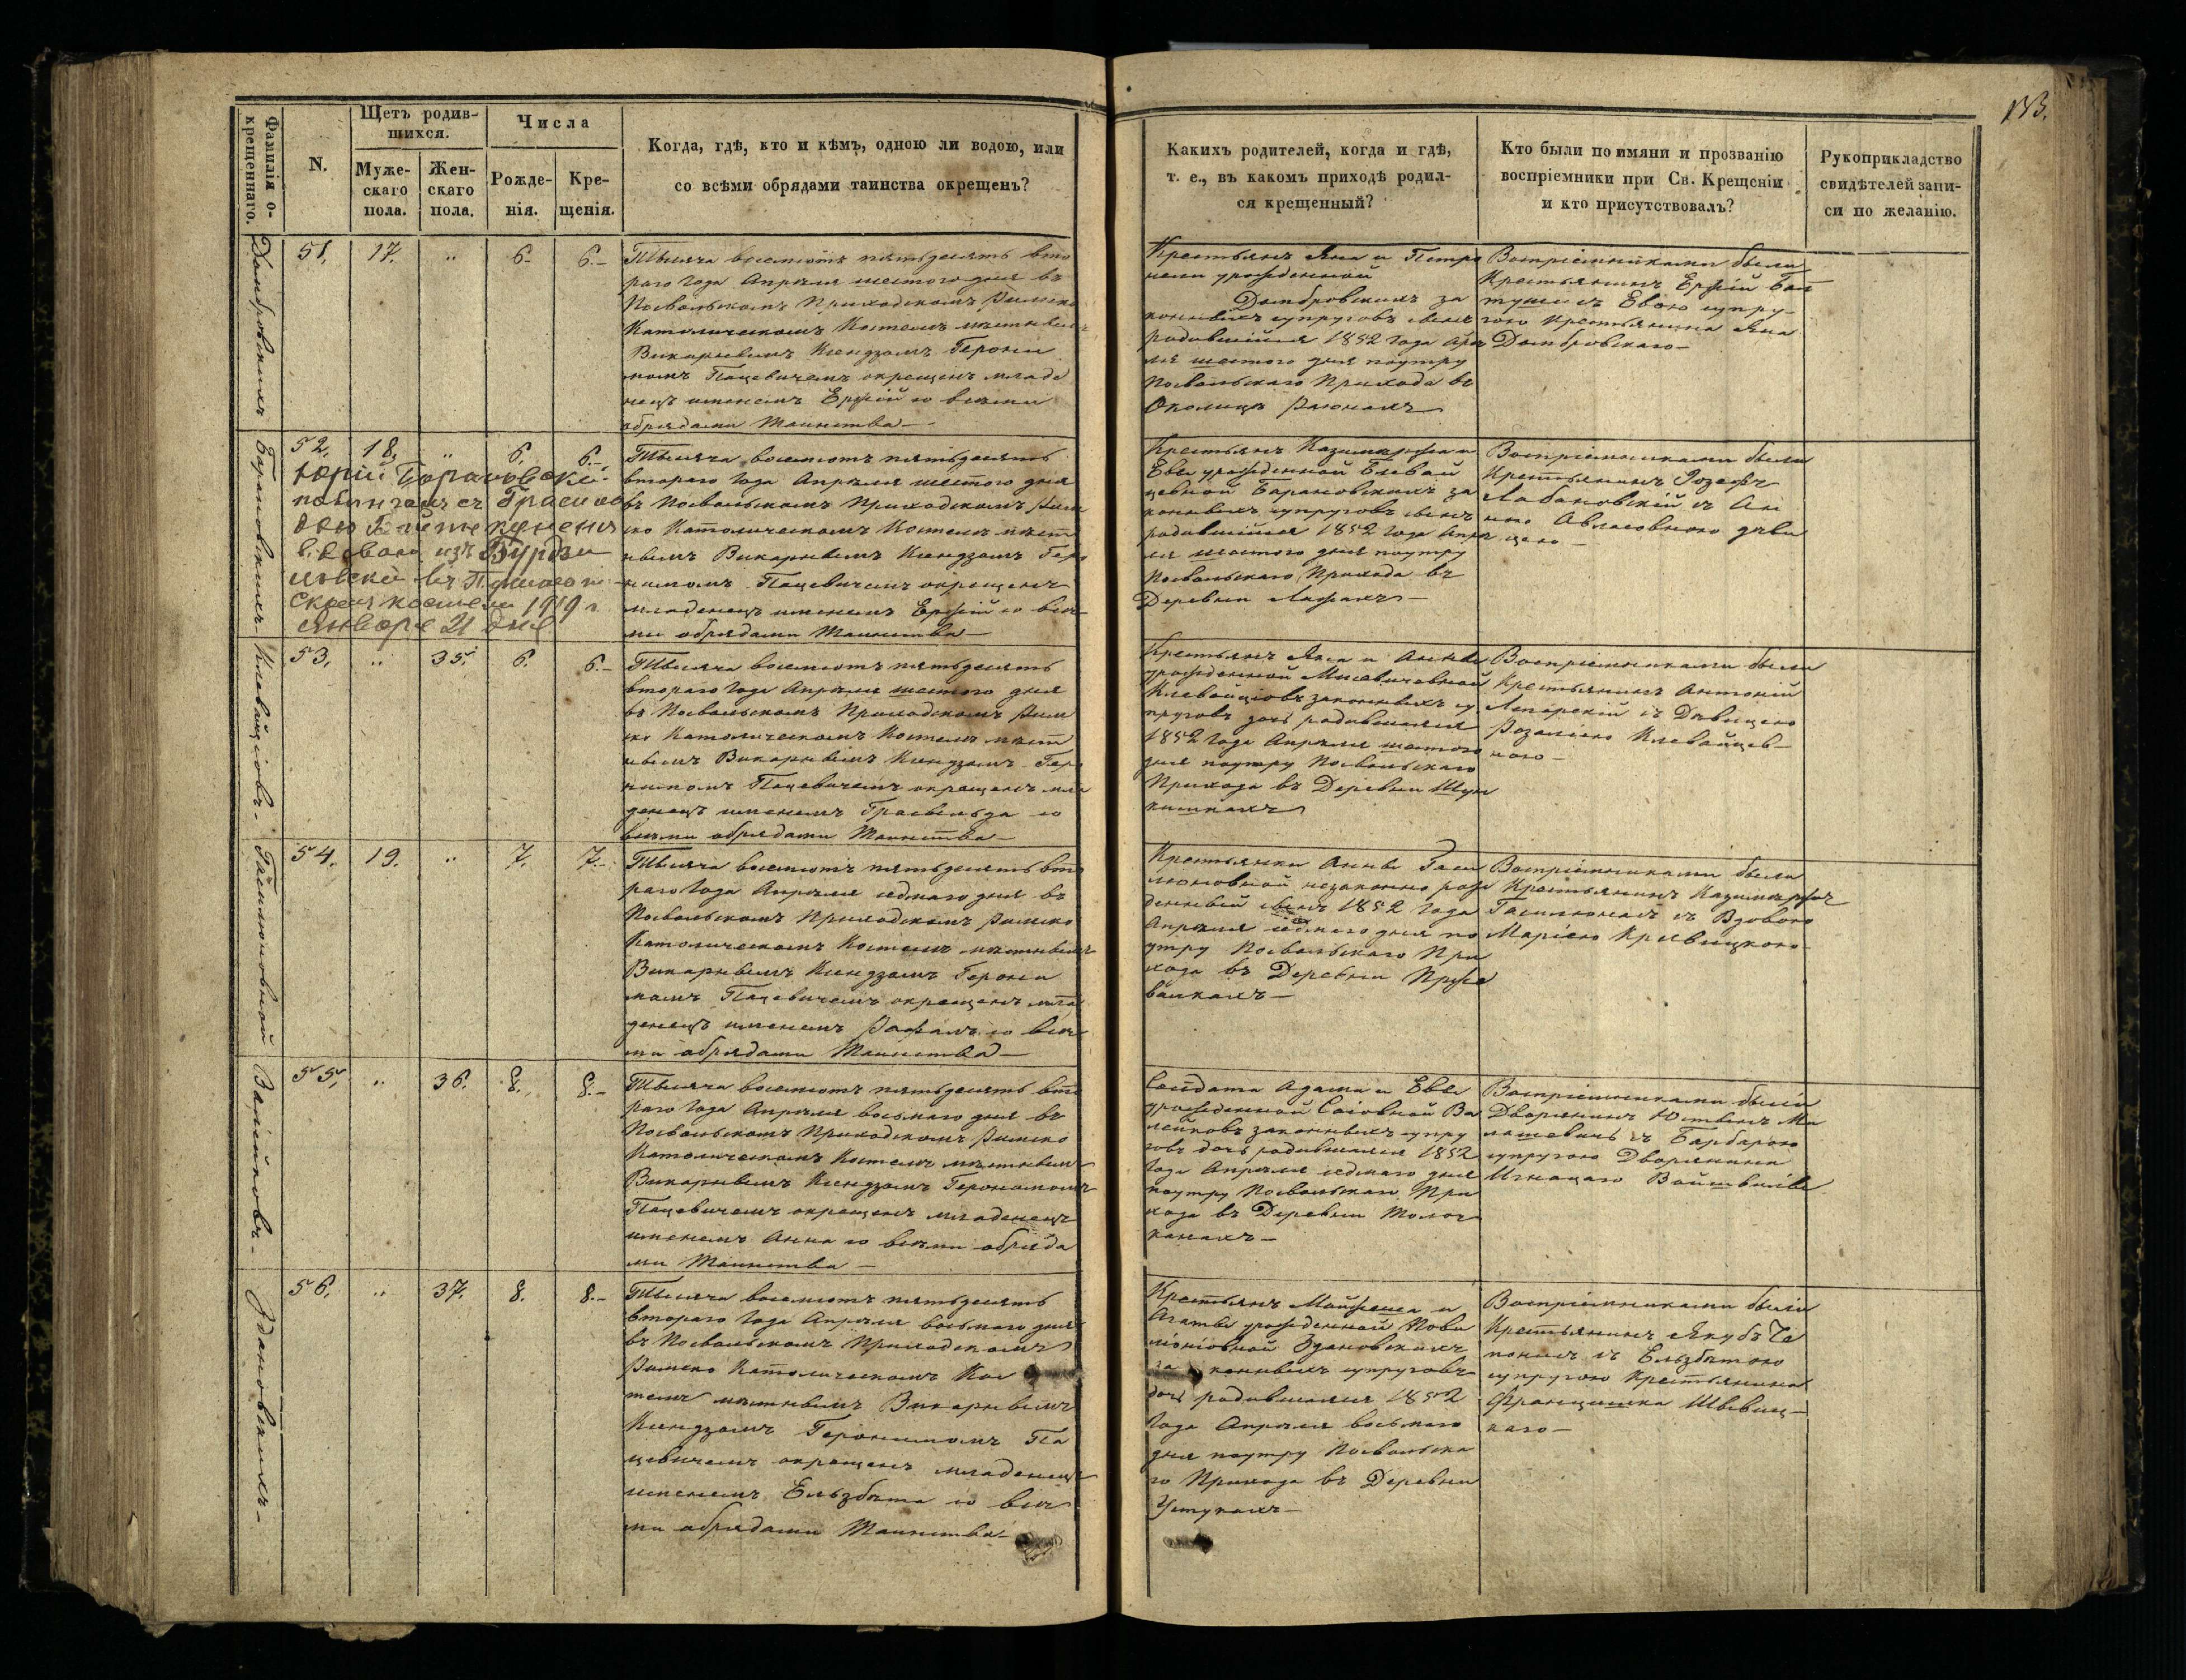 153.
Фамилія о-
крещеннаго.
N.
Щетъ родив-
шихся.
Муже-
скаго
пола.
Жен-
скаго
пола.
Числа
Рожде-
нія.
Кре-
щенія.
Когда, гдѣ, кто и кѣмъ, одною ли водою, или
со всѣми обрядами таинства окрещенъ?
Какихъ родителей, когда и гдѣ,
т. е., въ какомъ приходѣ родил-
ся крещенный?
Кто были по имяни и прозванію
воспріемники при Св. Крещеніи
и кто присутствовалъ?
Рукоприкладство
свидѣтелей запи-
си по желанію.
Домбровскихъ
51. 17. „ 6. 6.-
Тысяча восемсотъ пятьдесятъ вто
раго Года Апрѣля шестого дня въ
Посвольскомъ Приходскомъ Римско
Католическомъ Костелѣ мѣстнымъ
Викарнымъ Ксендзомъ Герони
момъ Пацевичемъ окрещенъ младе
нецъ именемъ Ержій со всѣми
обрядами Таинства-
Крестьянъ Яна и Петро
нели урожденной
Домбровскихъ за
конныхъ супруговъ сынъ
родившійся 1852 Года Апрѣ
ля шестого дня поутру
Посвольскаго Прихода въ
Околицѣ
Воспріемниками были
Крестьянинъ Ержій
съ Евою супру-
гою Крестьянина Яна
Домбровскаго-
Барановскихъ-
52. 18. „ 6. 6.-
Юрій Барановскій
въ
1919 г.
Января 21 дня
Тысяча восемсотъ пятьдесятъ
втораго Года Апрѣля шестого дня
въ Посвольскомъ Приходскомъ Рим
ско Католическомъ Костелѣ мѣст
нымъ Викарнымъ Ксендзомъ Геро
нимомъ Пацевичемъ окрещенъ
младенецъ именемъ Ержій со всѣ
ми обрядами Таинства-
Крестьянъ Казимержа и
Евы урожденной
Барановскихъ за
конныхъ супруговъ сынъ
родившійся 1852 Года Апрѣ
ля шестого дня поутру
Посвольскаго Прихода въ
Деревни
Воспріемниками были
Крестьянинъ Іозефъ
Лабановскій съ Ан
ною дѣви
цею-
Клевайціовъ-
53. „ 35. 6. 6.-
Тысяча восемсотъ пятьдесятъ
втораго Года Апрѣля шестого дня
въ Посвольскомъ Приходскомъ Рим
ско Католическомъ Костелѣ мѣст
нымъ Викарнымъ Ксендзомъ Геро
нимомъ Пацевичемъ окрещенъ мла
денецъ именемъ Грасыльда со
всѣми обрядами Таинства-
Крестьянъ Яна и Анны
урожденной Мисевичовной
Клевайціовъ законныхъ су
пруговъ дочь родившаяся
1852 Года Апрѣля шестого
дня поутру Посвольскаго
Прихода въ Деревни
Воспріемниками были
Крестьянинъ Антоній
съ Дѣвицею
Розаліею Клевайцев-
ною-
Гасилюновной
54. 19. „ 7. 7.-
Тысяча восемсотъ пятьдесятъ вто
раго Года Апрѣля седмаго дня въ
Посвольскомъ Приходскомъ Римско
Католическомъ Костелѣ мѣстнымъ
Викарнымъ Ксендзомъ Герони
момъ Пацевичемъ окрещенъ мла
денецъ именемъ Рафалъ со всѣ
ми обрядами Таинства-
Крестьянки Анны Гаси
люновной незаконно рож
денный сынъ 1852 Года
Апрѣля седмаго дня по
утру Посвольскаго При
хода въ Деревни
Воспріемниками были
Крестьянинъ Казимержъ
Гасилюнасъ съ Вдовою
Маріею
Валейковъ-
55. „ 36. 8. 8.-
Тысяча восемсотъ пятьдесятъ вто
раго Года Апрѣля восьмаго дня въ
Посвольскомъ Приходскомъ Римско
Католическомъ Костелѣ мѣстнымъ
Викарнымъ Ксендзомъ Геронимомъ
Пацевичемъ окрещенъ младенецъ
именемъ Анна со всѣми обряда
ми Таинства-
Солдата Адама и Евы
урожденной Ва
лейковъ законныхъ супру
говъ дочь родившаяся 1852
Года Апрѣля седмаго дня
поутру Посвольскаго При
хода въ Деревни
Воспріемниками были
Дворянинъ Ми
лашевичъ съ Барбарою
супругою Дворянина
Игнацаго
Здановскихъ-
56. „ 37. 8. 8.-
Тысяча восемсотъ пятьдесятъ
втораго Года Апрѣля восьмаго дня
въ Посвольскомъ Приходскомъ
Римско Католическомъ Кос
телѣ мѣстнымъ Викарнымъ
Ксендзомъ Геронимомъ Па
цевичемъ окрещенъ младенецъ
именемъ Ельзбѣта со всѣ
ми обрядами Таинства-
Крестьянъ и
Агаты урожденной
Здановскихъ
законныхъ супруговъ
дочь родившаяся 1852
Года Апрѣля восьмаго
дня поутру Посвольска
го Прихода въ Деревни
Устукахъ-
Воспріемниками были
Крестьянинъ Якубъ Че
съ Ельзбѣтою
супругою Крестьянина
Францишка